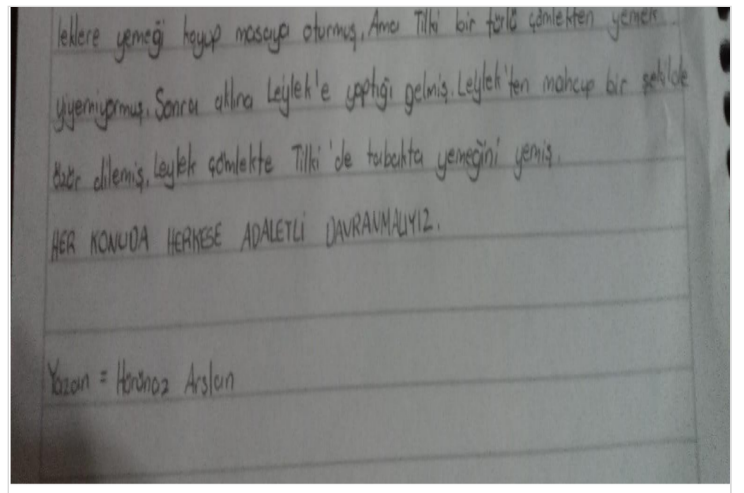 leklere yemeği koyup masaya oturmuş. Ama Tilki bir türlü çömlekten yemek
yiyemiyormuş. Sonra aklına Leylek'e yaptığı gelmiş. Leylek'ten mahcup bir şekilde
özür dilemiş. Leylek çömlekte Tilki'de tabakta yemeğini yemiş.
HER KONUDA HERKESE ADALETLİ DAVRANMALIYIZ.
Yazan = Arslan